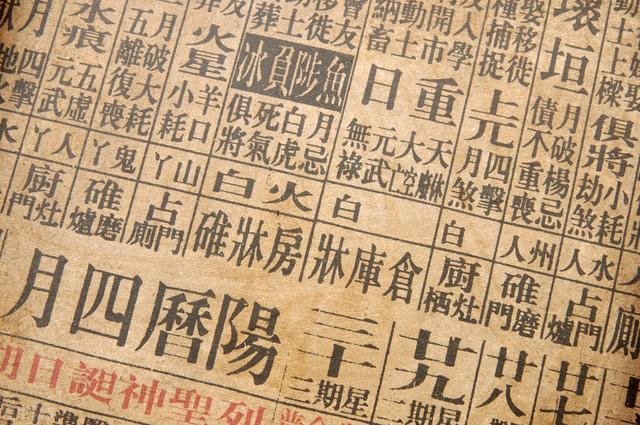 娶移徙
種捕捉
友人學
開市
納動土
畜
會友
移徙
葬土
壞垣
上元
重日
魚陟負冰
火星
水痕
俱將
小耗
劫煞
月破楊忌
債不重喪
四擊
月煞
天
大
元武
無祿
月忌
白虎
死氣
俱將
羊口
小耗
月破大耗
五離復喪
五虛
元武
四擊
水人
州人
白
白
火白
山丫
鬼丫
人丫
占門爐
碓磨門
廚灶栖
倉庫牀
房牀碓
占門廁
碓磨爐
廚灶門
廿七
廿八
廿九
三十
陽曆四月
星期二
星期三
列聖神誕日